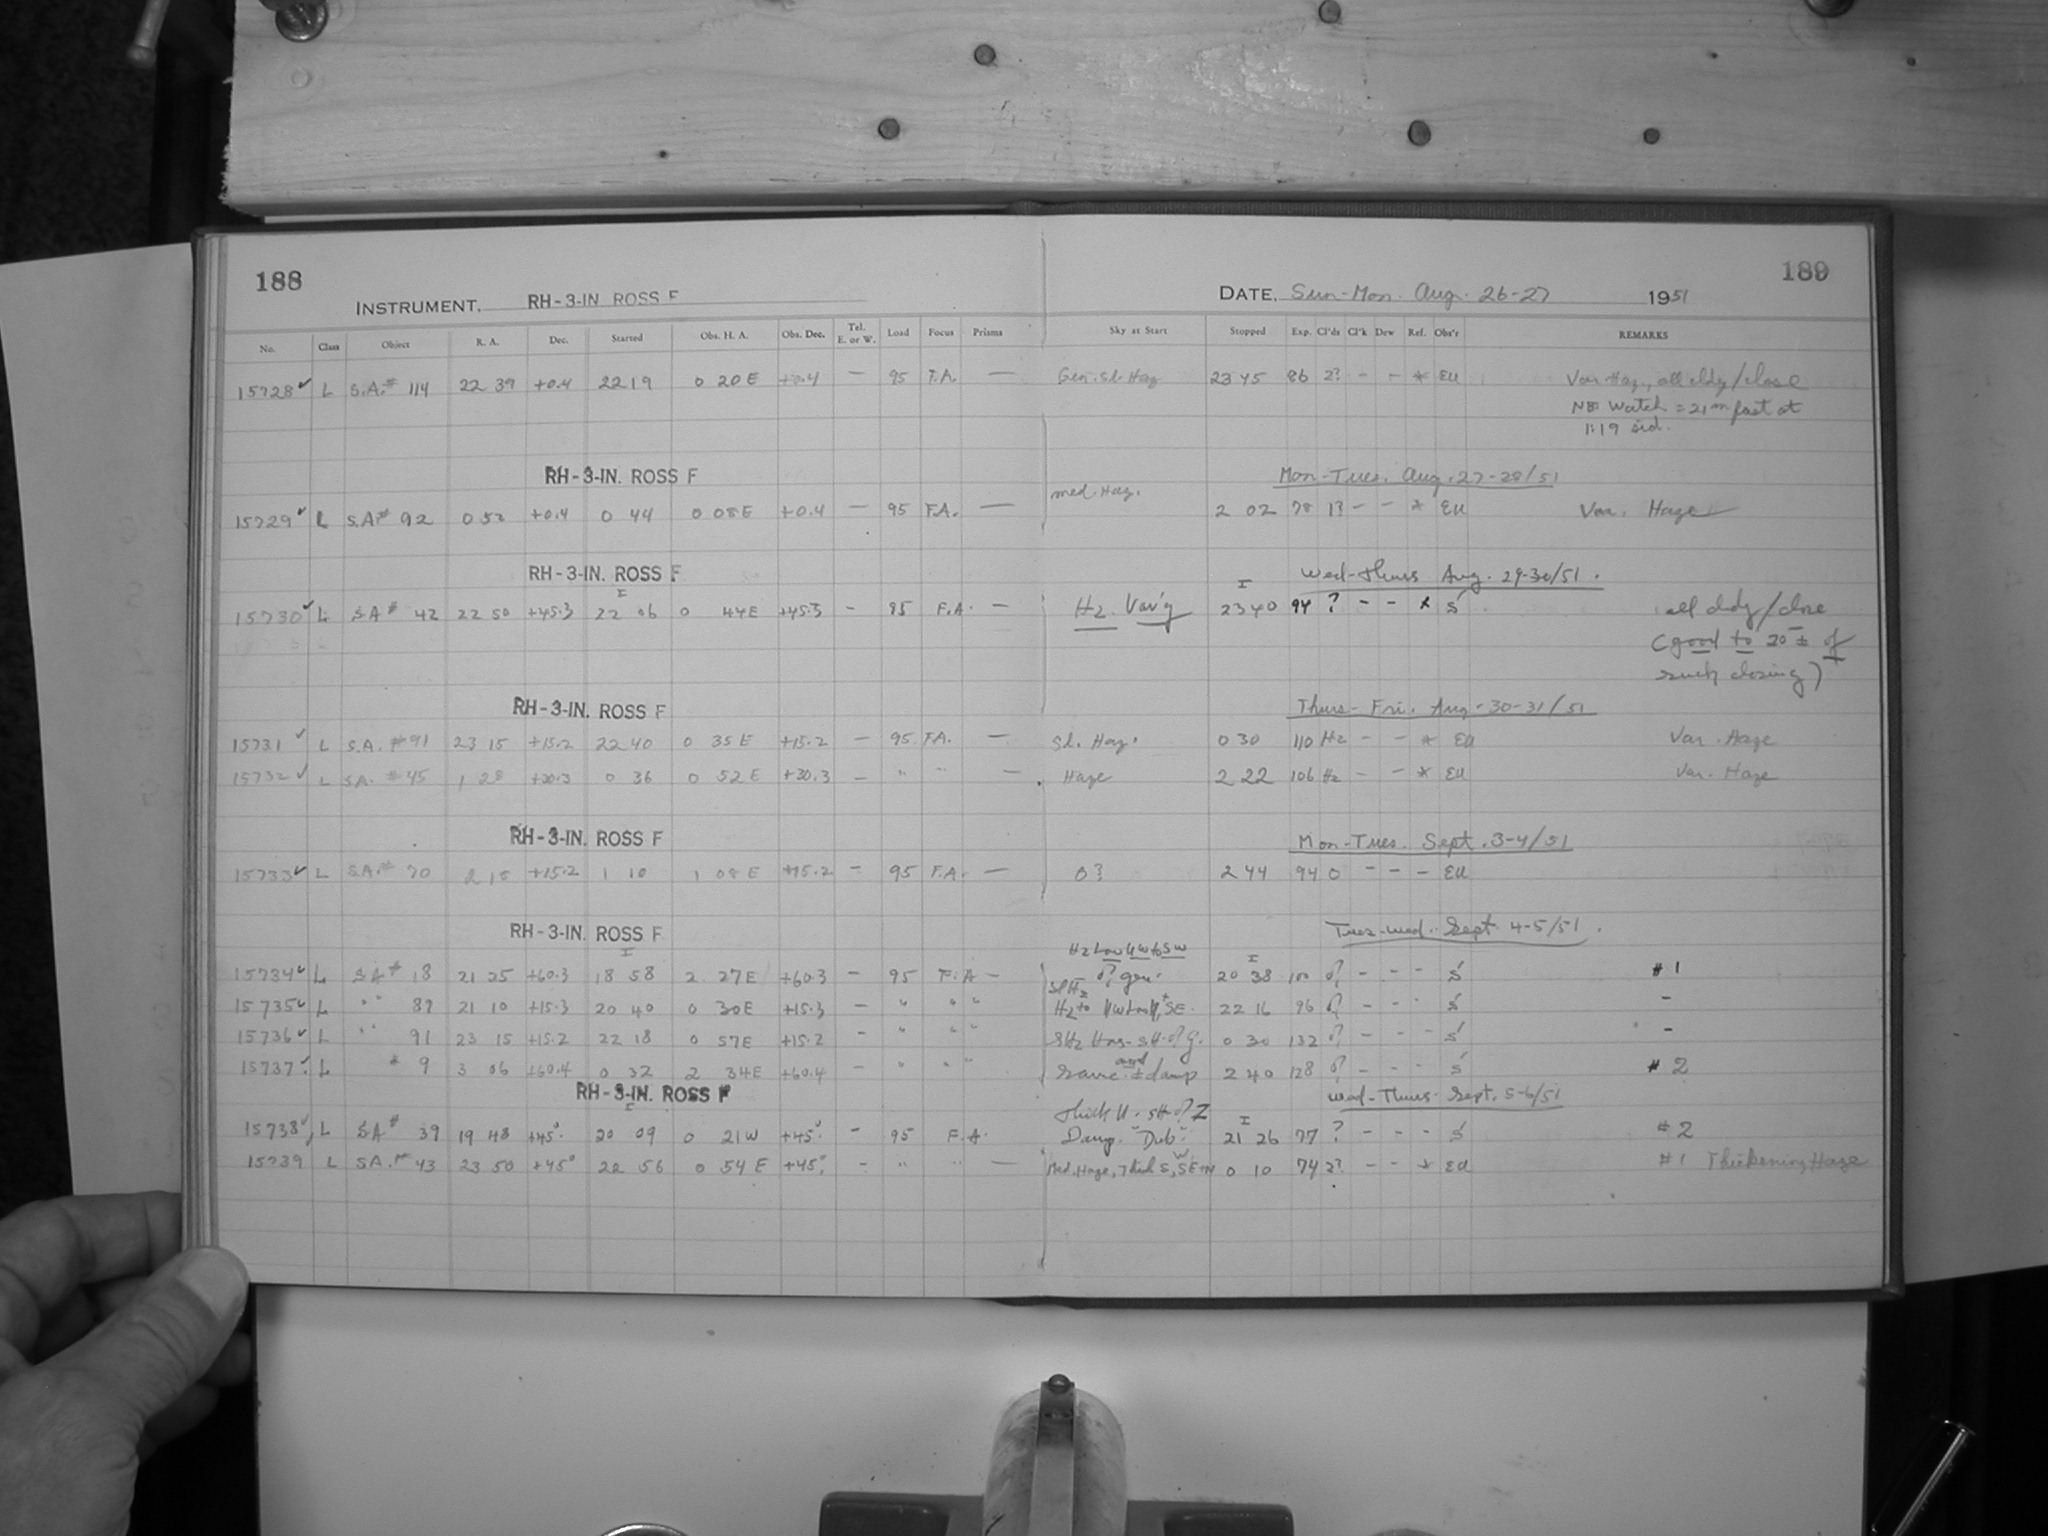 188
189
INSTRUMENT, RH-3-IN. ROSS F
DATE, Sun-Mon. Aug. 26-27 1951
No. Class Object R. A. Dec. Started Obs. H. A. Obs. Dec. Tel. E. or W. Load Focus Prisms Sky at Start Stopped Exp. Cl'ds Cl'k Dew Ref. Obs'r REMARKS
15728✓ L S.A.# 114 22 39 +0.4 22 19 0 20 E +0.4 — 95 F.A. — Gen. sl. Haz 23 45 86 2? - - * EU Var Haz., all cldy/close
NB Watch = 21m fast at
1:19 sid.
RH-3-IN. ROSS F Mon-Tues. Aug. 27-28/51
15729✓ L S.A.# 92 0 52 +0.4 0 44 0 08 E +0.4 — 95 F.A. — med. Haz. 2 02 78 1? - - * EU Var. Haze
RH-3-IN. ROSS F Wed-Thurs Aug. 29-30/51.
15730✓ L SA# 42 22 50 +45.3 22 06 0 44E +45.3 - 95 F.A. — Hz. Var'g 23 40 94 ? - - * S' all cldy/close
(good to 20 ± of
such closing)
RH-3-IN. ROSS F Thurs-Fri. Aug-30-31/51
15731✓ L S.A. #91 23 15 +15.2 22 40 0 35 E +15.2 — 95 F.A. — Sl. Haz. 0 30 110 Hz - - * EU Var. Haze
15732✓ L S.A. #45 1 28 +30.3 0 36 0 52 E +30.3 — " " " — Haze 2 22 106 Hz - - * EU Var. Haze
RH-3-IN. ROSS F Mon-Tues. Sept. 3-4/51
15733✓ L S.A.# 70 2 18 +15.2 1 10 1 08 E +15.2 - 95 F.A. — 0? 2 44 94 0 - - - EU
RH-3-IN. ROSS F Tues-Wed. Sept. 4-5/51.
Hz Low NW to SW
15734✓ L SA# 18 21 25 +60.3 18 58 2 27E +60.3 - 95 F.A - 0? gen. 20 38 100 0? - - - S' #1
15735✓ L " " 89 21 10 +15.3 20 40 0 30E +15.3 - " " " 22 16 96 0? - - - S' -
15736✓ L " " 91 23 15 +15.2 22 18 0 57E +15.2 - " " " 0 30 132 0? - - - S' -
15737✓ L # 9 3 06 +60.4 0 32 2 34E +60.4 - " " " Same and ± damp 2 40 128 0? - - - S' #2
RH-3-IN. ROSS F Wed-Thurs. Sept. 5-6/51
15738✓ L SA# 39 19 48 +45° 20 09 0 21W +45° - 95 F.A. Damp. "Dub". 21 26 77 ? - - - S' #2
15739 L S.A.# 43 23 50 +45° 22 56 0 54 E +45° - " " — Med. Haze, Thick S, SE+W 0 10 74 2? - - * EU #1 Thickening Haze